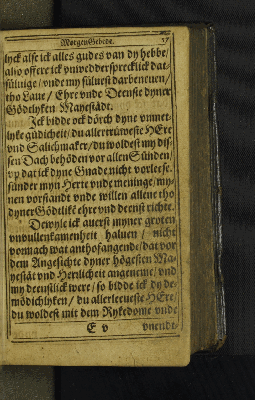 MorgenGebede. 37
lyck alse ick alles gudes van dy hebbe/
also offere ick vnweddersprecklick dat-
súluige/ vnde my súluest darbeneuen/
tho Laue/ Ehre vnde Deenste dyner
Gödtlyken Mayestädt.
Ick bidde ock dörch dyne vnmet-
lyke güdicheit/ du allertrüweste HEre
vnd Salichmaker/ du woldest my dis-
sen Dach behöden vor allen Sünden/
vp dat ick dyne Gnade nicht vorlese.
sünder myn Herte vnde meninge/ my-
nen vorstandt vnde willen allene tho
dyner Gödtlike ehre vnd deenst richte.
Dewyle ick auerst myner groten
vnvullenkamenheit haluen/ nicht
vormach wat anthofangende/ dat vor
dem Angesichte dyner högesten Ma-
yestät vnd Herrlicheit angeneme/ vnd
my deenstlick were/ so bidde ick dy de-
mödichlyken/ du allerleueste HEre/
du woldest mit dem Rykedome vnde
E v vnendt-